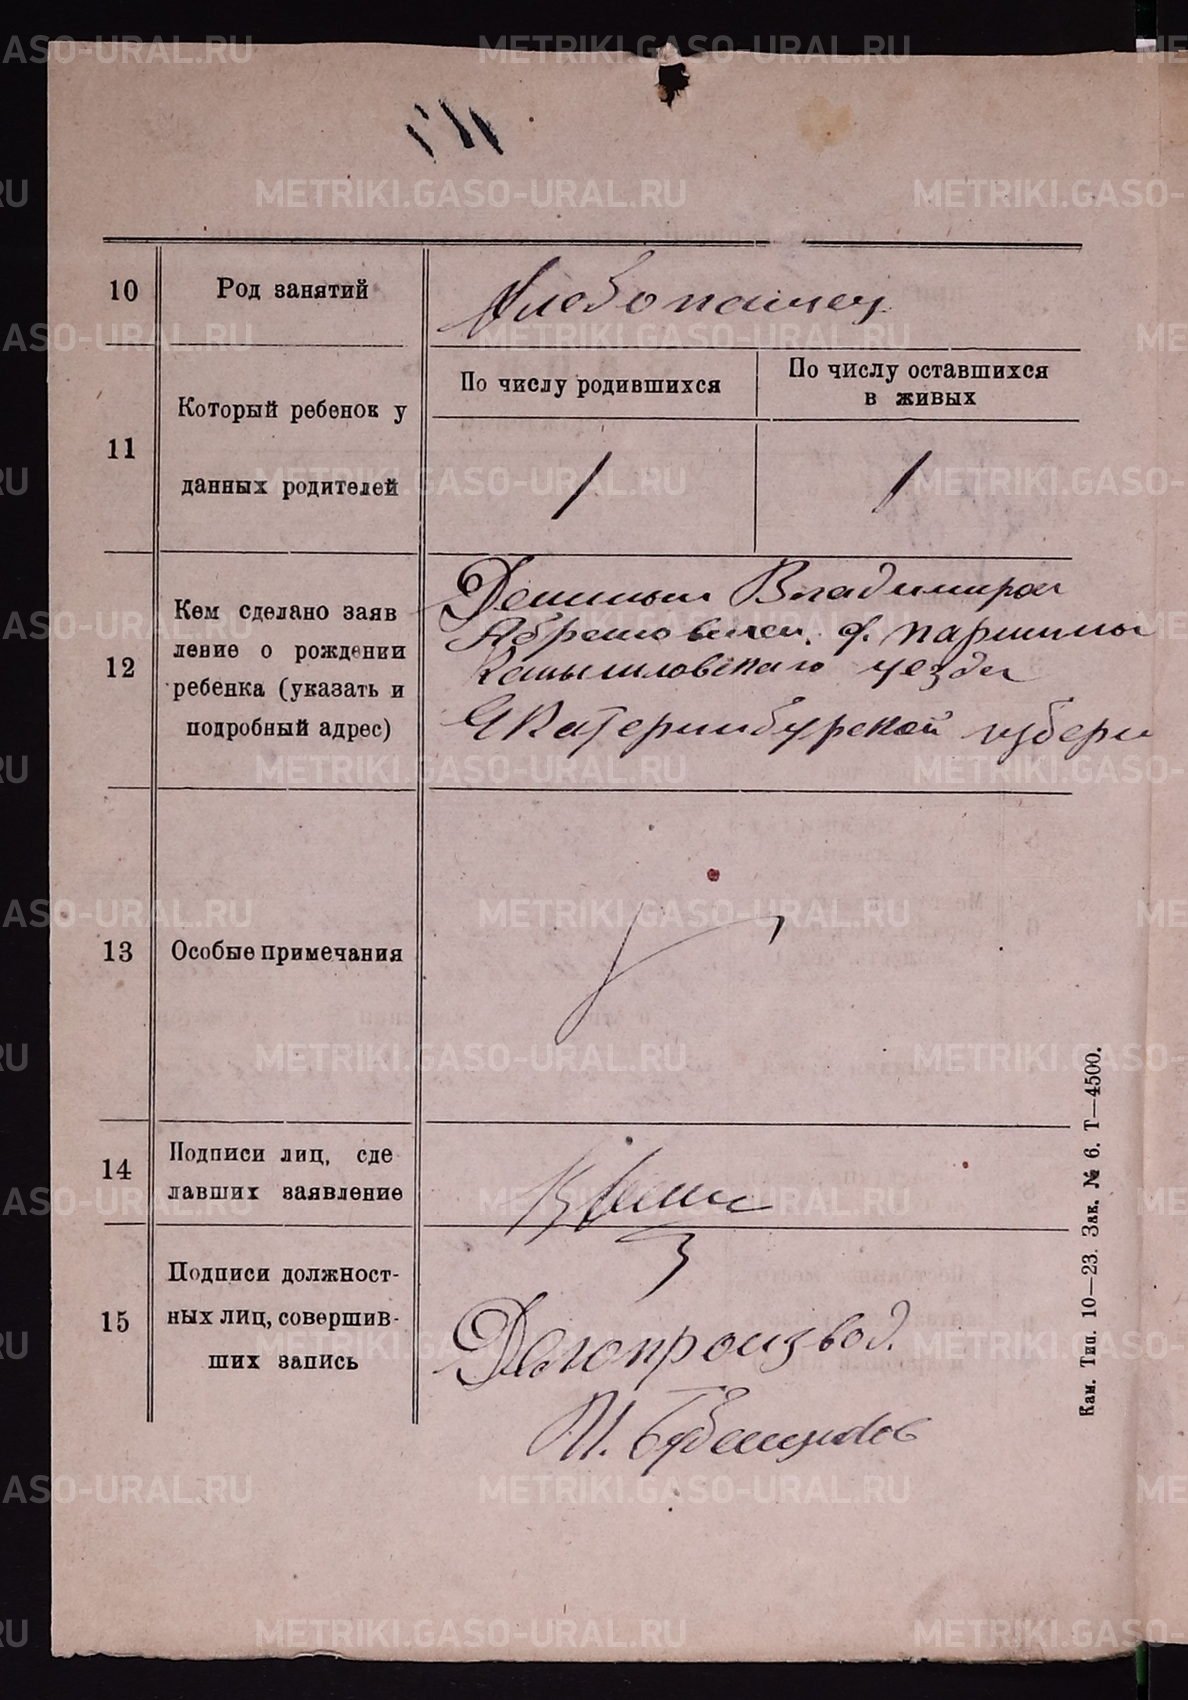 10 Род занятий Хлебопашец
11 Который ребенок у данных родителей
По числу родившихся
По числу оставшихся
в живых
1 1
12 Кем сделано заяв
ление о рождении
ребенка (указать и
подробный адрес)
Владимиром
Абрамовичем. д. Паршины
Камышловскаго уезда
Екатеринбурской губерн
13 Особые примечания
14 Подписи лиц, сде
лавших заявление
15 Подписи должност-
ных лиц, совершив-
ших запись
Делопроизвод.
Кам. Тип. 10—23. Зак. № 6. Т—4500.
METRIKI.GASO-URAL.RU